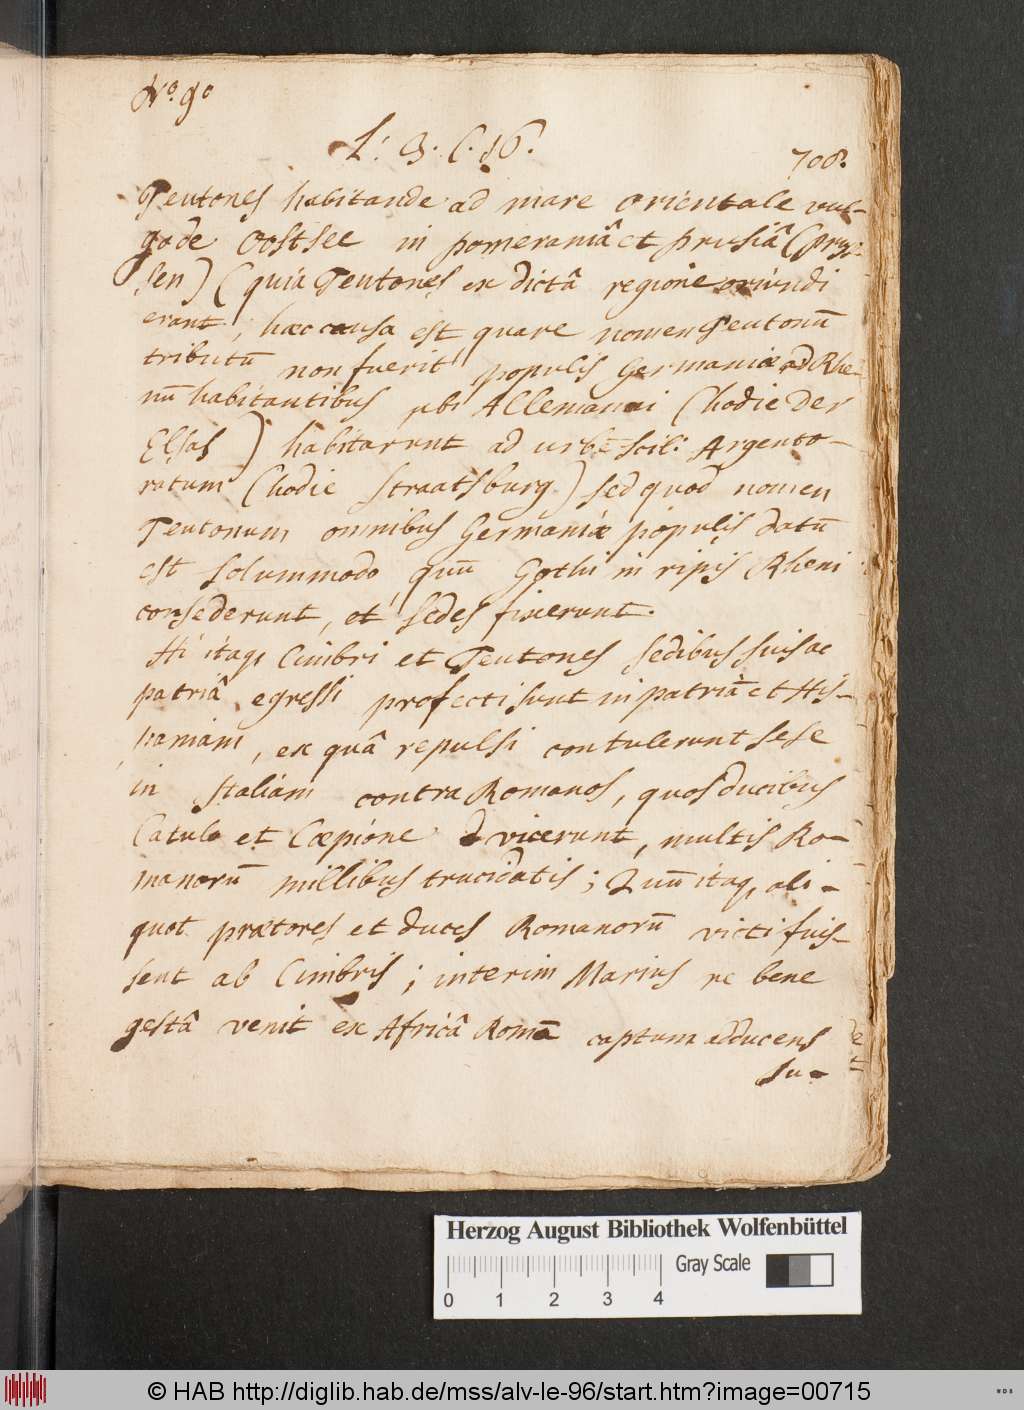 No. 90
L: 3. C. 16.
708.
Teutones habitande ad mare orientale vul-
go de Oostsee in pomeraniâ et prusiâ (pruy-
sen) (quia Teutones ex dictâ regione oriundi
erant, hæc causa est quare nomen Teutonū
tributū non fuerit populis Germaniæ ad Rhe-
nū habitantibus ubi Allemanni (hodie Der
Elsas) habitarunt ad urbē scil: Argento-
ratum (hodie Straatsburg) sed quod nomen
Teutonum omnibus Germaniæ populis datū
est solummodo, quū Gothi in ripis Rheni
consederunt, et sedes fixerunt.
Hi itaq, Cimbri et Teutones sedibus suis ac
patriâ egressi profecti sunt in patriā et His-
paniam, ex quâ repulsi contulerunt sese
in Italiam contra Romanos, quos ducibus
Catulo et Cæpione vicerunt, multis Ro-
manorū millibus trucidatis; Quū itaq, ali-
quot prætores et duces Romanorū victi fuis-
sent ab Cimbris; interim Marius re bene
gestâ venit ex Africâ Romā captum adducens
Ju-
Herzog August Bibliothek Wolfenbüttel
Gray Scale
0 1 2 3 4
© HAB http://diglib.hab.de/mss/alv-le-96/start.htm?image=00715